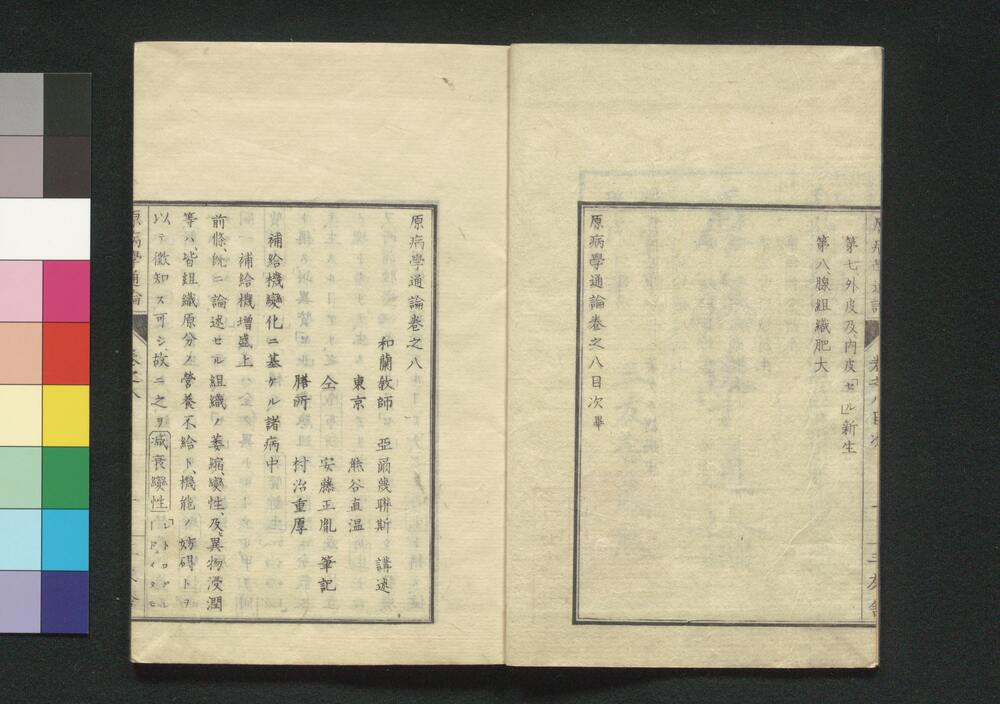 第七外皮及内皮「セルレ」新生
第八腺組織肥大
原病學通論卷之八目次畢
原病學通論卷之八
和蘭敎師 亞爾蔑聯斯 講述
東京 熊谷直溫
仝 安藤正胤 筆記
膳所 村治重厚
補給機變化ニ基ケル諸病中
補給機增盛上
前條、既ニ論述セル組織ノ萎縮、變性、及ヒ異物浸潤
等ハ、皆組織原分ノ營養不給ト、機能ノ妨碍トヲ
以テ徵知ス可シ、故ニ之ヲ減衰變性
原病學通論